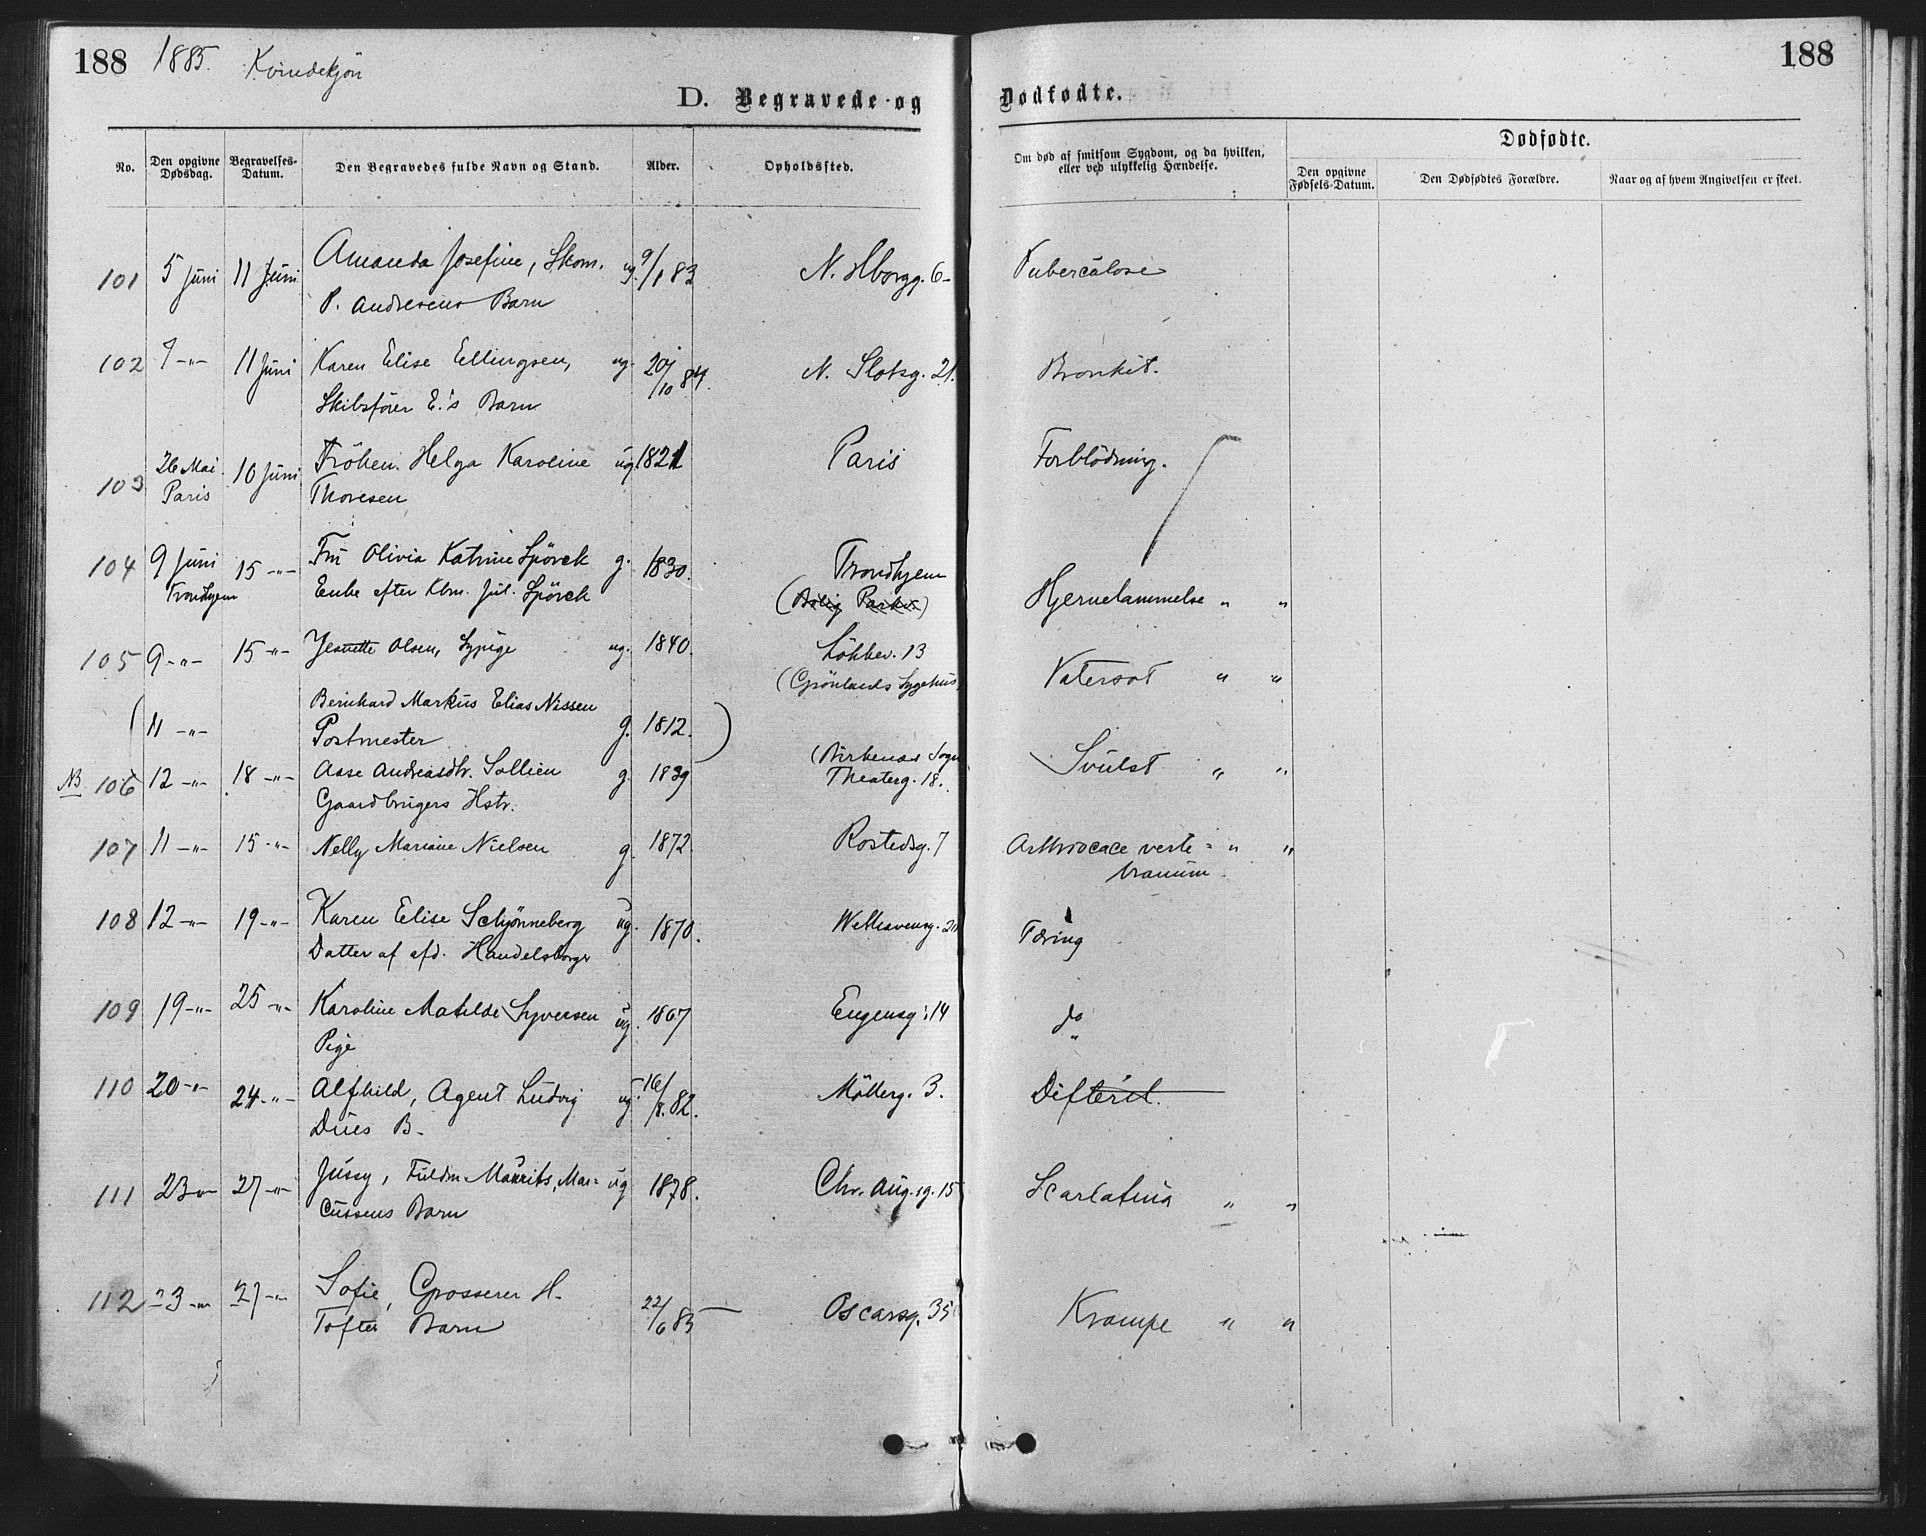 188 1885. Kvindekjön
188
D. Begravede og Dødfødte.
No.
Den opgivne Dødsdag.
Begravelses-Datum.
Den Begravedes fulde Navn og Stand.
Alder.
Opholdssted.
Om død af smitsom Sygdom, og da hvilken,
eller ved ulykkelig Hændelse.
Dødfødte.
Den opgivne Fødsels-Datum.
Den Dødfødtes Forældre.
Naar og af hvem Angivelsen er skeet.
101 5 Juni 11 Juni Amanda Josefine, Skom. ug. 9/1 83 N. Hborgg. 6- Tuberculose
P. Andresens Barn
102 7 -"- 11 Juni Karen Elise Ellingsen, ug. 20/10 84. N. Slotsg. 21. Bronkit.
Skibsfører E.'s Barn
103 26 Mai 10 Juni Fröken Helga Karoline ug 1821 Paris Forblödning.
Paris Thoresen
104 9 Juni 15 -"- Fru Olivia Katrine Spörck g. 1830. Trondhjem
Trondhjem Enke efter Kbm. Jul. Spörck (Bolig Parkv.) Hjernelammelse " "
105 9 -"- 15 -"- Jenette Olsen, Sypige ug. 1840. Lökkev. 13
(Grönlands Sygehus) Vatersot " "
( 11 -"- Bernhard Markus Elias Nissen g. 1812. )
Postmester
(Birkenæs Sogn
NB. 106 12 -"- 18 -"- Aase Andreasdtr. Sollien g. 1839 Theaterg. 18. Svulst " "
Gaardbrugers Hstr.
107 11 -"- 15 -"- Nelly Mariane Nielsen g. 1872. Rostedsg. 7 Arthrocace verte= " "
branum.
108 12 -"- 19 -"- Karen Elise Schjønneberg ug. 1870. Wethavensg. Tæring
Datter af afd. Handelsborger
109 19 -"- 25 -"- Karoline Matilde Syversen ug. 1867 Eugensg. 14 do "
Pige
110 20 -"- 24 -"- Alfhild, Agent Ludvig ug. 16/8. 82. Möllerg. 3. Difterit.
Dües B-
111 23 -"- 27 -"- Jussy, Fuldm. Maurits, Mar= ug 1878. Chr. Aug. g. 15 Scarlatina " "
cussens Barn
112 23 -"- 27 -"- Sofie, Grosserer H. 22/6 85 Oscarsg. 35 Krampe " "
Toftes Barn